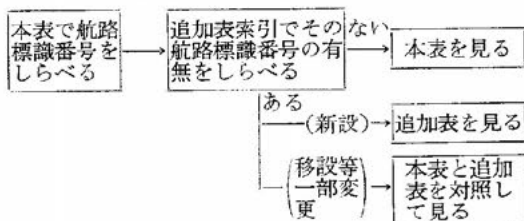 本表で航路
標識番号を
しらべる
追加表索引でその
航路標識番号の有
無をしらべる
ない
本表を見る
ある
(新設)
追加表を見る
(移設等
一部変
更)
本表と追加
表を対照し
て見る